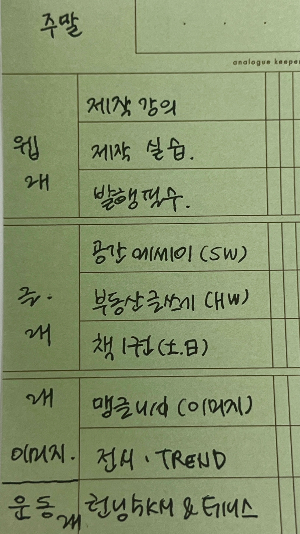 주말
analogue keeper
제작 강의
웹 제작 실습.
개 발행 필수.
공간 에세이 (SW)
글. 부동산 글쓰기 (HW)
개 책 1권 (土.日)
개
이미지. 전시 · TREND
운동 런닝 5KM & 테니스